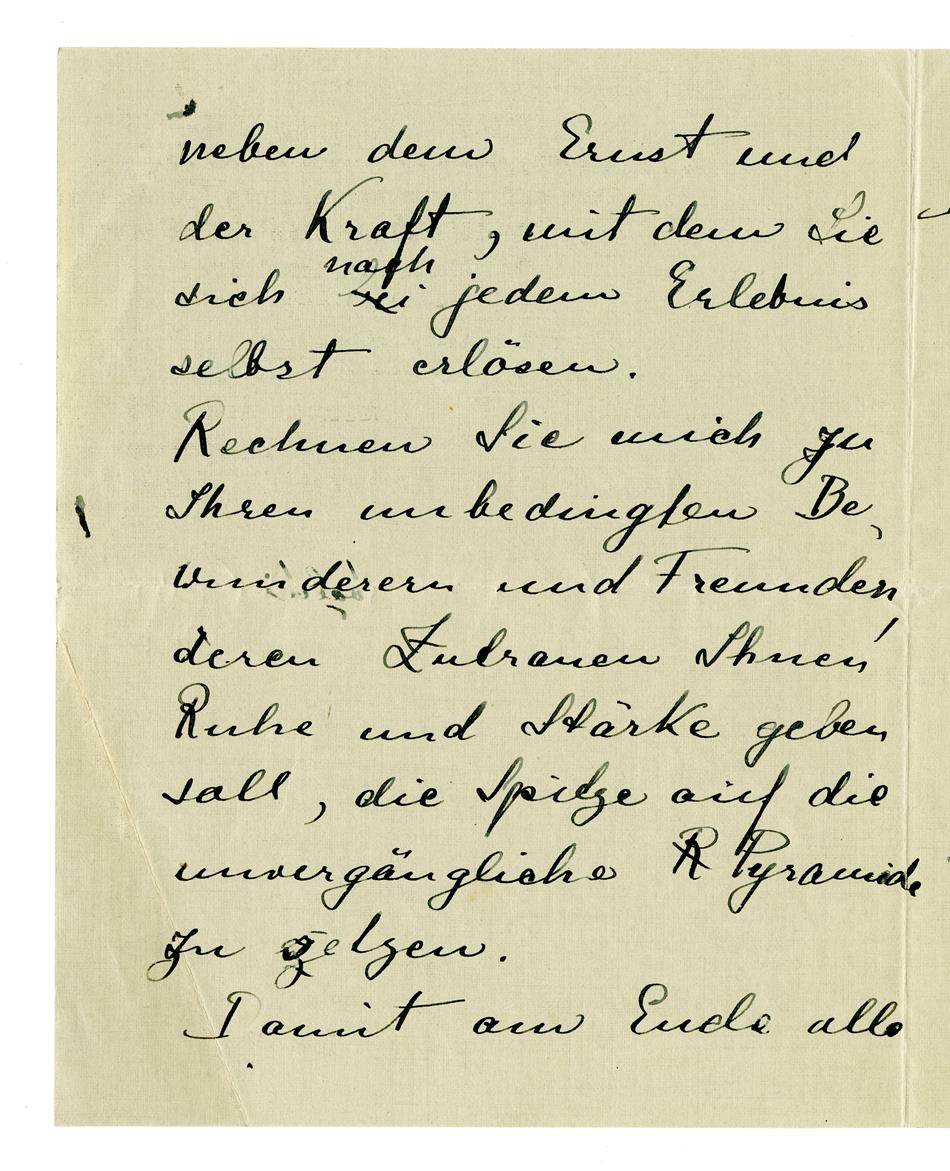 neben dem Ernst und
der Kraft, mit dem Sie
nach
sich bei jedem Erlebnis
selbst erlösen.
Rechnen Sie mich zu
Ihren unbedingten Be-
wunderern und Freunden,
deren Zutrauen Ihnen
Ruhe und Stärke geben
soll, die Spitze auf die
unvergängliche R Pyramide
zu setzen.
Damit am Ende alle